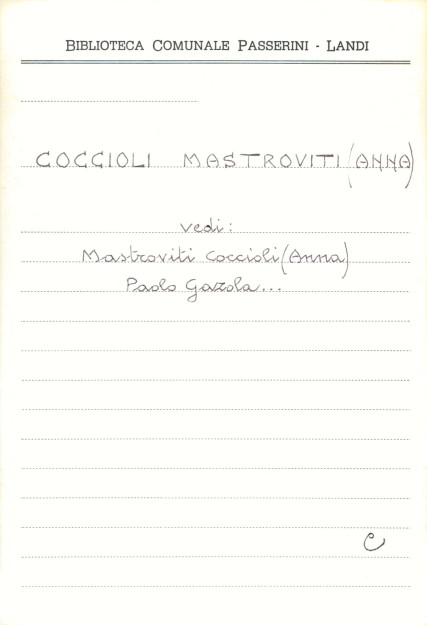 BIBLIOTECA COMUNALE PASSERINI - LANDI
COCCIOLI MASTROVITI (ANNA)
vedi:
Mastroviti Coccioli (Anna)
Paolo Gazola...
C